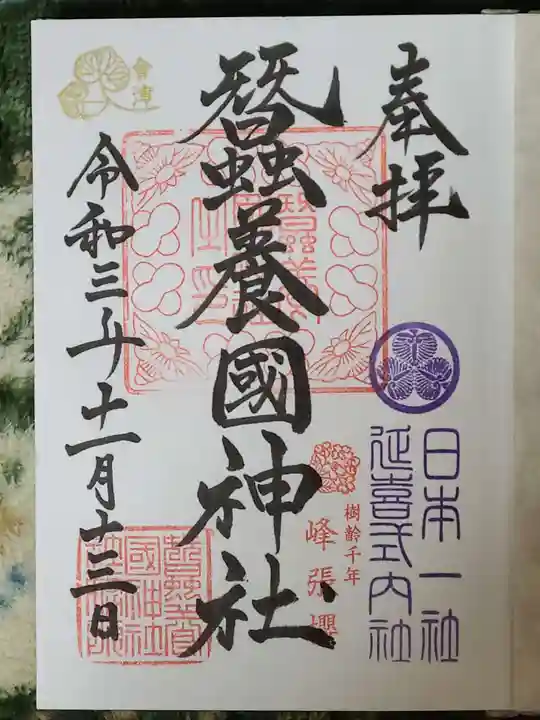 奉拝
日本一社
延喜式内社
蠶養國神社
樹齢千年
峰張櫻
會津
令和三年十一月十三日